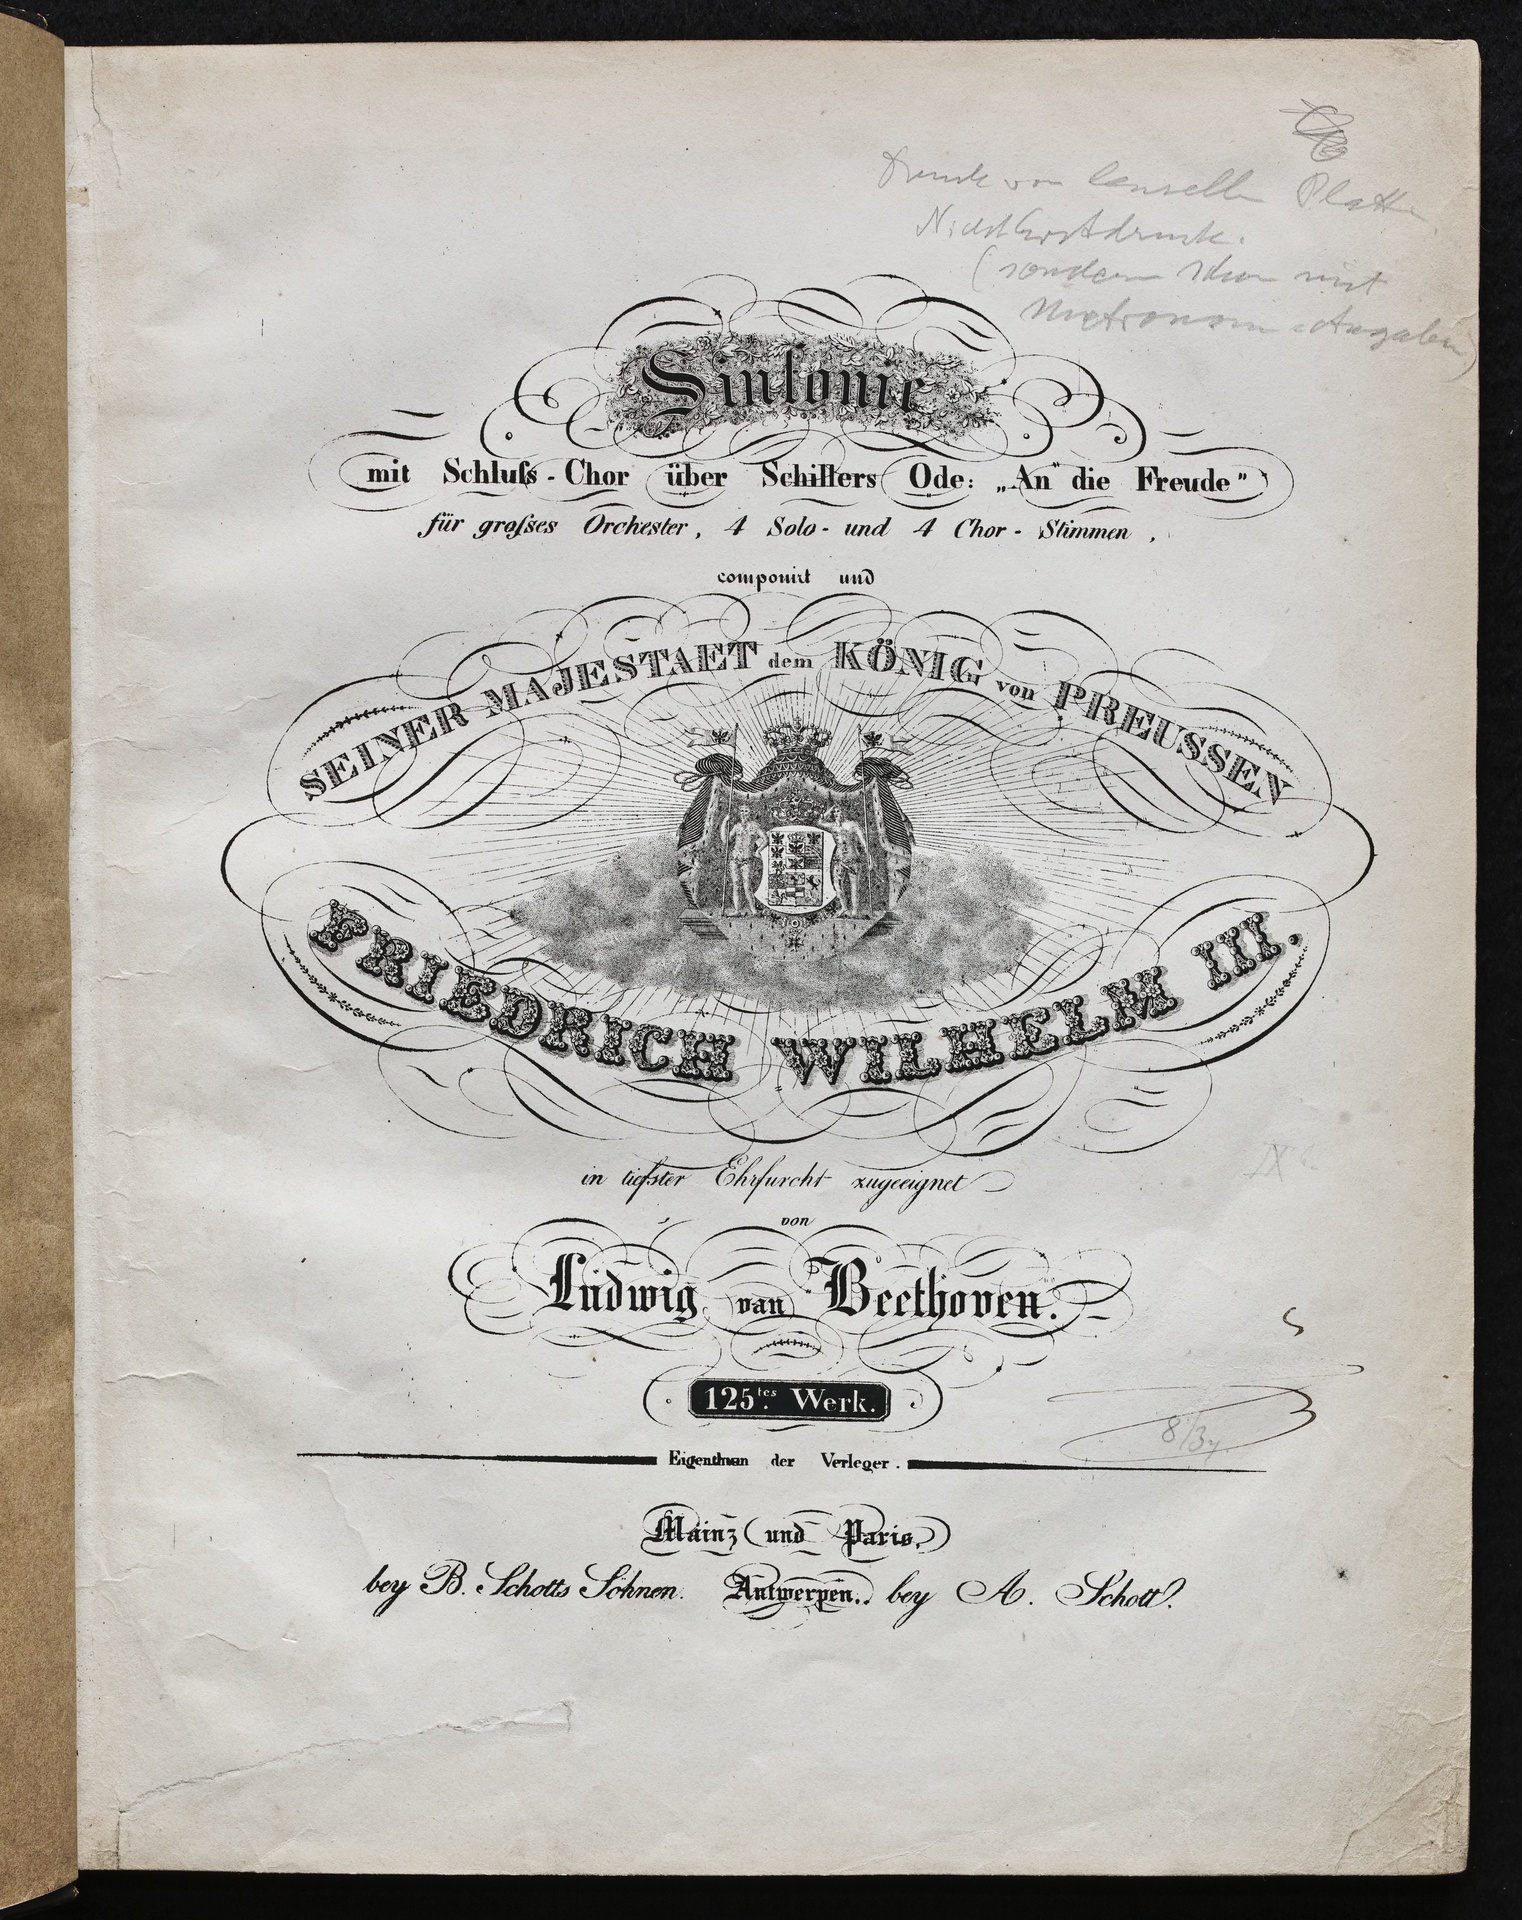 Druck von derselben Platte
Nicht Erstdruck.
(sondern schon mit
Metronom-Angaben)
Sinfonie
mit Schluſs-Chor über Schillers Ode: „An die Freude"
für groſses Orchester, 4 Solo- und 4 Chor-Stimmen,
componirt und
SEINER MAJESTAET dem KÖNIG von PREUSSEN
FRIEDRICH WILHELM III.
in tiefster Ehrfurcht zugeeignet
von
Ludwig van Beethoven.
125tes. Werk.
Eigenthum der Verleger.
Mainz und Paris,
bey B. Schotts Söhnen. Antwerpen.. bey A. Schott.